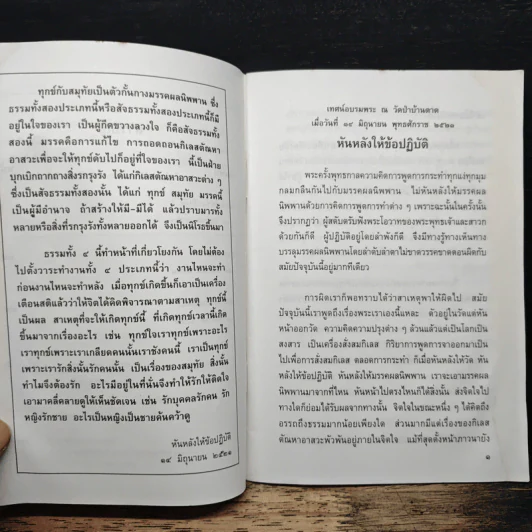 ทุกข์กับสมุทัยเป็นตัวกั้นกางมรรคผลนิพพาน ซึ่ง
ธรรมทั้งสองประเภทนี้หรือสัจธรรมทั้งสองประเภทนี้ก็มี
อยู่ในใจของเรา เป็นผู้กีดขวางลวงใจ ก็คือสัจธรรมทั้ง
สองนี้ มรรคคือการแก้ไข การถอดถอนกิเลสตัณหา
อาสวะเพื่อจะให้ทุกข์ดับไปก็อยู่ที่ใจของเรา นี้เป็นฝ่าย
บุกเบิกถากถางสิ่งรกรุงรัง ได้แก่กิเลสตัณหาอาสวะต่าง ๆ
ซึ่งเป็นสัจธรรมทั้งสองนั้น ได้แก่ ทุกข์ สมุทัย มรรคนี้
เป็นผู้มีอำนาจ ถ้าสร้างให้มี-มีได้ แล้วปราบมารทั้ง
หลายหรือสิ่งที่รกรุงรังทั้งหลายออกได้ จึงเป็นนิโรธขึ้นมา
ธรรมทั้ง ๔ นี้ทำหน้าที่เกี่ยวโยงกัน โดยไม่ต้อง
ไปตั้งวาระทำงานทั้ง ๔ ประเภทนี้ว่า งานไหนจะทำ
ก่อนงานไหนจะทำหลัง เมื่อทุกข์เกิดขึ้นก็เอาเป็นเครื่อง
เตือนสติแล้วว่าให้จิตได้คิดพิจารณาตามสาเหตุ ทุกข์นี้
เป็นผล สาเหตุที่จะให้เกิดทุกข์นี้ ที่เกิดทุกข์เวลานี้เกิด
ขึ้นมาจากเรื่องอะไร เช่น ทุกข์ใจเราทุกข์เพราะอะไร
เราทุกข์เพราะเราเกลียดคนนั้นเราชังคนนี้ เราเป็นทุกข์
เพราะเรารักสิ่งนั้นรักคนนั้น เป็นเรื่องของสมุทัย สิ่งนั้น
ทำไมจึงต้องรัก อะไรมีอยู่ในที่นั่นจึงทำให้รักให้ติดใจ
เอามาคลี่คลายดูให้เห็นชัดเจน เช่น รักบุคคลรักคน รัก
หญิงรักชาย อะไรเป็นหญิงเป็นชายค้นคว้าดู
หันหลังให้ข้อปฏิบัติ
๑๔ มิถุนายน ๒๕๒๑
เทศน์อบรมพระ ณ วัดป่าบ้านตาด
เมื่อวันที่ ๑๔ มิถุนายน พุทธศักราช ๒๕๒๑
หันหลังให้ข้อปฏิบัติ
พระครั้งพุทธกาลความคิดการพูดการกระทำทุกแง่ทุกมุม
กลมกลืนกันไปกับมรรคผลนิพพาน ไม่หันหลังให้มรรคผล
นิพพานด้วยการคิดการพูดการทำต่าง ๆ เพราะฉะนั้นในครั้งนั้น
จึงปรากฏว่า ผู้สดับตรับฟังพระโอวาทของพระพุทธเจ้าและสาวก
ด้วยกันก็ดี ผู้ปฏิบัติอยู่โดยลำพังก็ดี จึงมีทางรู้ทางเห็นทาง
บรรลุมรรคผลนิพพานโดยลำดับลำดาไม่ขาดวรรคขาดตอนผิดกับ
สมัยปัจจุบันนี้อยู่มากทีเดียว
การผิดเราก็พอทราบได้ว่าสาเหตุพาให้ผิดไป สมัย
ปัจจุบันนี้เราพูดถึงเรื่องพระเราเองนี้แหละ ตัวอยู่ในวัดแต่หัน
หน้าออกวัด ความคิดความปรุงต่าง ๆ ล้วนแล้วแต่เป็นโลกเป็น
สงสาร เป็นเครื่องสั่งสมกิเลส กิริยาการพูดการจาออกมาเป็น
ไปเพื่อการสั่งสมกิเลส ตลอดการกระทำ ก็เมื่อหันหลังให้วัด หัน
หลังให้ข้อปฏิบัติ หันหลังให้มรรคผลนิพพาน เราจะเอามรรคผล
นิพพานมาจากที่ไหน หันหน้าไปตรงไหนก็ได้สิ่งนั้น ส่งจิตใจไป
ทางใดก็ย่อมได้รับผลจากทางนั้น จิตใจในขณะหนึ่ง ๆ ได้คิดถึง
อรรถถึงธรรมมากน้อยเพียงใด ส่วนมากมีแต่เรื่องของกิเลส
ตัณหาอาสวะพัวพันอยู่ภายในจิตใจ แม้ที่สุดตั้งหน้าภาวนายัง
๑